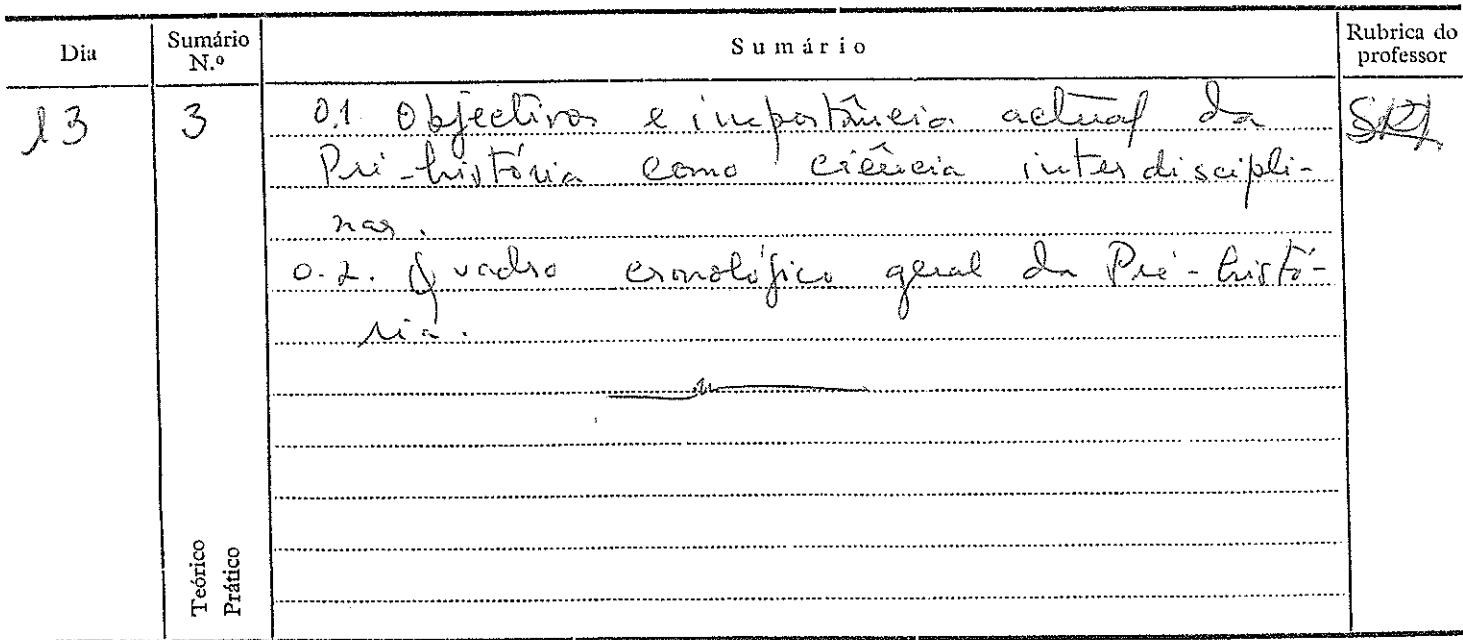 Dia
Sumário N.º
Sumário
Rubrica do professor
13
3
0.1 Objectivos e importância actual da
Pré-história como ciência interdiscipli-
nar.
0.2. Quadro cronológico geral da Pré-histó-
ria.
Teórico
Prático